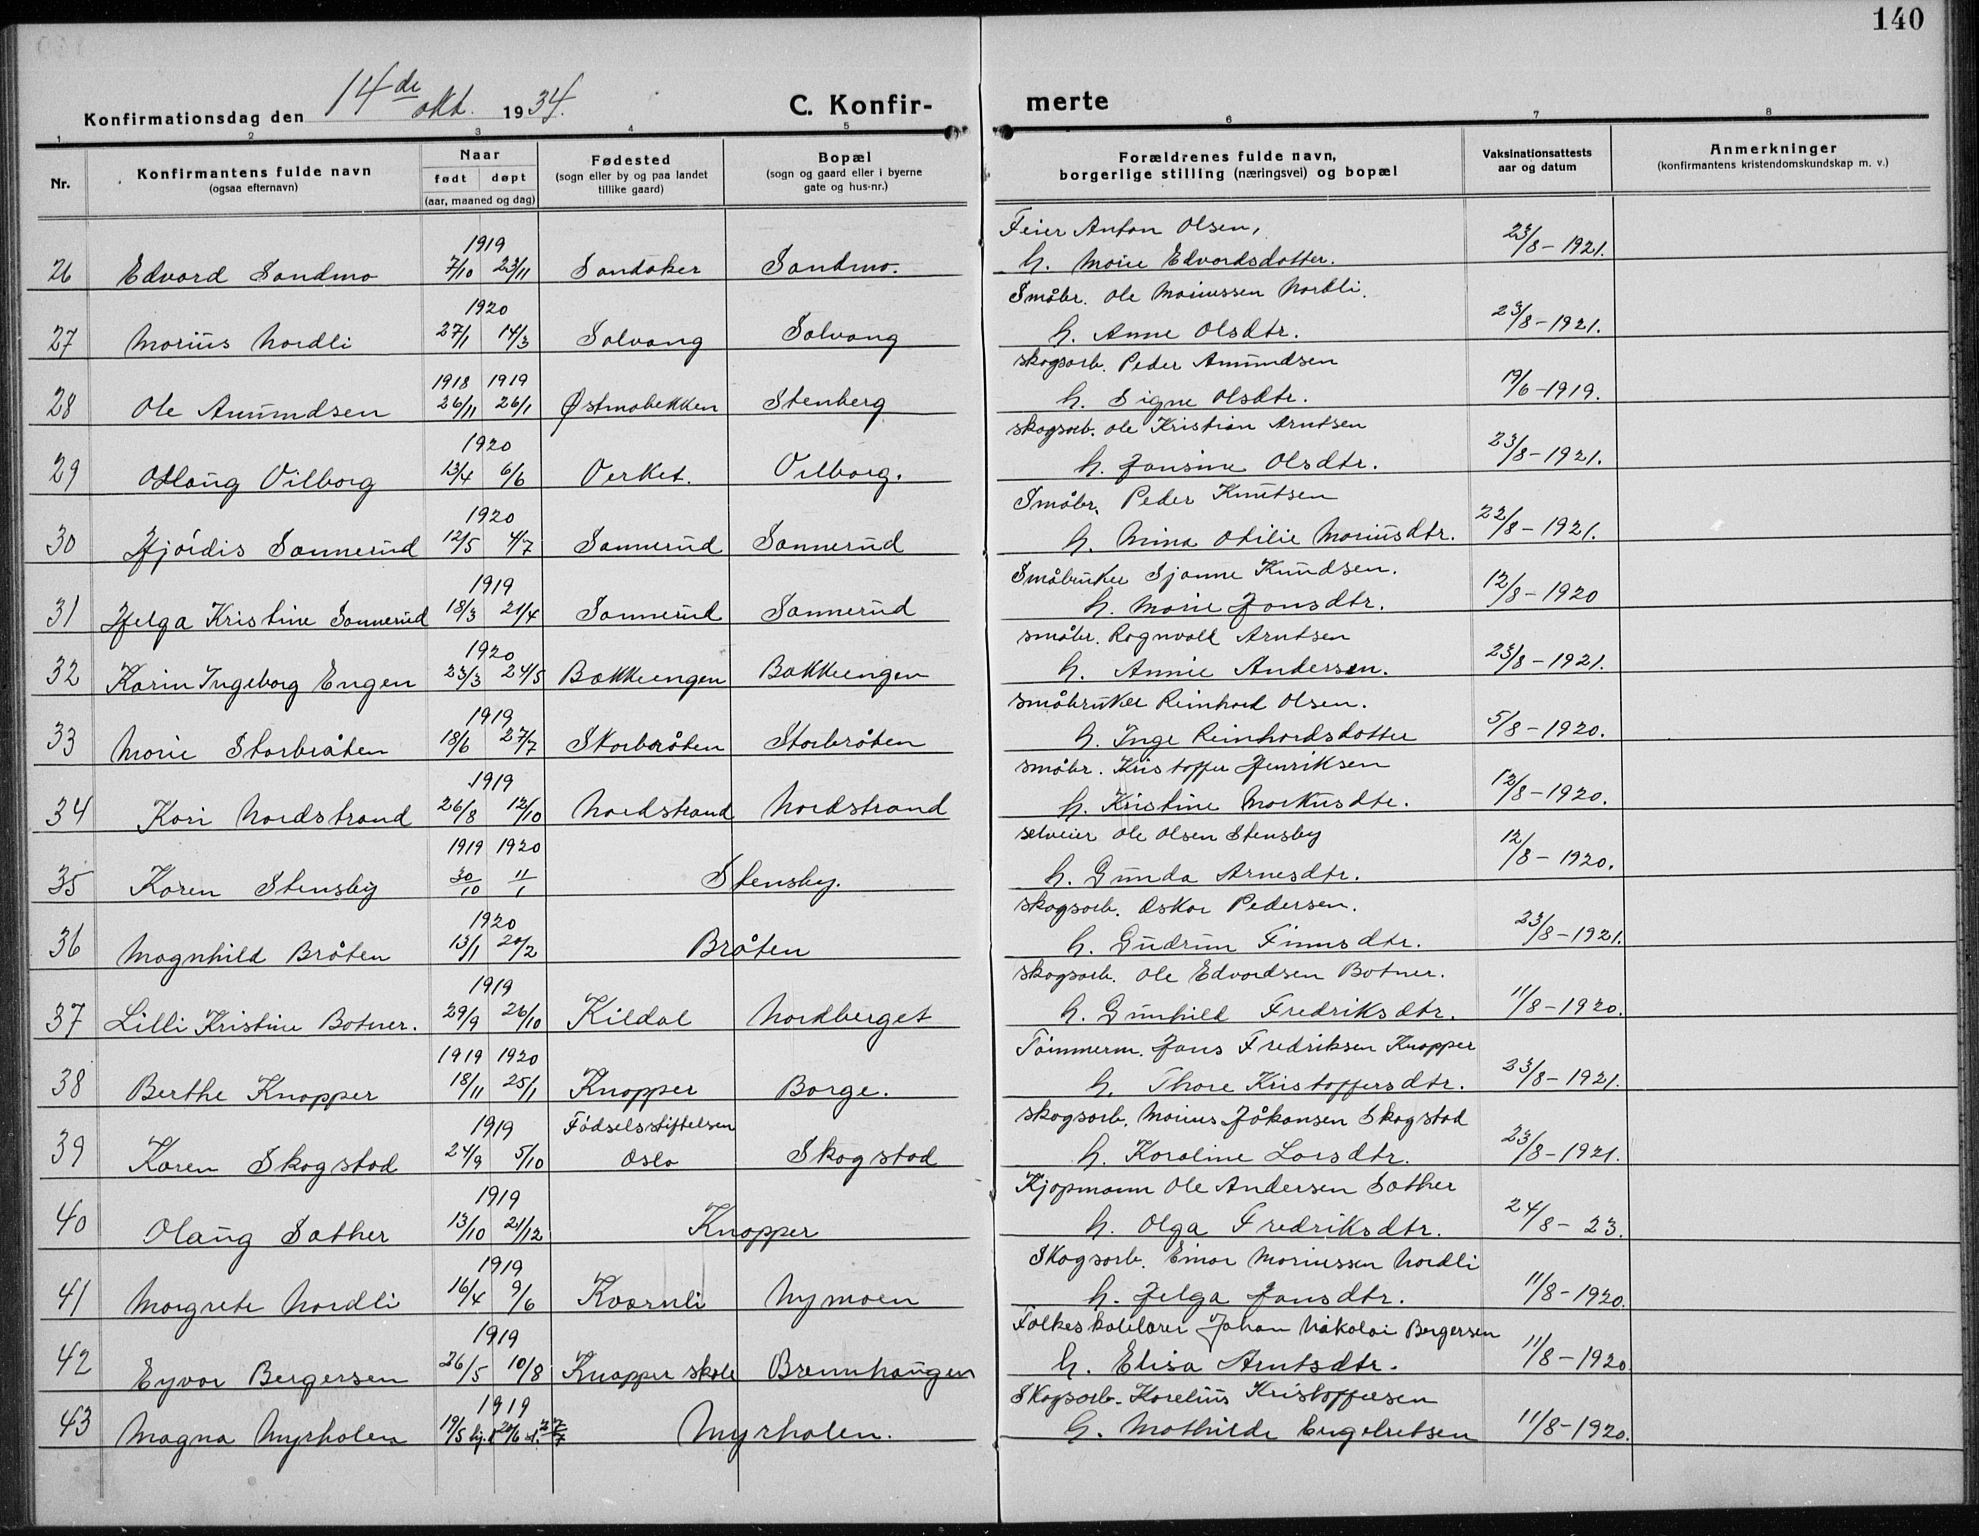 140
Konfirmationsdag den 14de okt. 1934.
C. Konfir-
merte
1 2 3 4 5 6 7 8
Nr.
Konfirmantens fulde navn
(ogsaa efternavn)
Naar
født døpt
(aar, maaned og dag)
Fødested
(sogn eller by og paa landet
tillike gaard)
Bopæl
(sogn og gaard eller i byerne
gate og hus-nr.)
Forældrenes fulde navn,
borgerlige stilling (næringsvei) og bopæl
Vaksinationsattests
aar og datum
Anmerkninger
(konfirmantens kristendomskundskap m. v.)
1919 Feier Anton Olsen,
26 Edvard Sandmo 7/10 23/11 Sandaker Sandmo. h. Marie Edvardsdatter. 23/8-1921.
1920 Småbr. Ole Mariussen Nordli.
27 Marius Nordli 27/1 14/3 Solvang Solvang h. Anne Olsdtr. 23/8-1921.
1918 1919 skogsarb. Peder Amundsen
28 Ole Amundsen 26/11 26/1 Østmobekken Stenberg h. Signe Olsdtr. 19/6-1919.
1920 skogsarb. Ole Kristian Arntsen
29 Aslaug Vilborg 13/4 6/6 Verket. Vilborg. h. Jonsine Olsdtr. 23/8-1921.
1920 Småbr. Peder Knutsen
30 Hjördis Sannerud 12/5 4/7 Sannerud Sannerud h. Mina Otilie Mariusdtr. 22/8-1921.
1919 Småbruker Sjønne Knudsen.
31 Helga Kristine Sannerud 18/3 21/4 Sannerud Sannerud h. Marie Jonsdtr. 12/8-1920
1920 småbr. Ragnvald Arntsen
32 Karin Ingeborg Engen 23/3 24/5 Bakkeengen Bakkeengen h. Annie Andersen. 23/8-1921.
1919 småbruker Reinhard Olsen.
33 Marie Storbråten 18/6 27/7 Storbråten Storbråten h. Inga Reinhardsdatter 5/8-1920.
1919 småbr. Kristoffer Henriksen
34 Kari Nordstrand 26/8 12/10 Nordstrand Nordstrand h. Kristine Markusdtr. 12/8-1920.
1919 1920 selveier Ole Olsen Stensby
35 Karen Stensby 30/10 11/1 Stensby. h. Gunda Arnesdtr. 12/8-1920.
1920 skogsarb. Oskar Pedersen.
36 Magnhild Bråten 13/1 20/2 Bråten h. Gudrun Finnsdtr. 23/8-1921.
1919 skogsarb. Ole Edvardsen Botner.
37 Lilli Kristine Botner. 29/9 26/10 Kildal Nordberget h. Gunhild Fredriksdtr. 11/8-1920.
1919 1920 Tömmerm. Hans Fredriksen Knapper
38 Berthe Knapper 18/11 25/1 Knapper Borge. h. Thora Kristoffersdtr. 23/8-1921.
1919 Födselsstiftelsen skogsarb. Marius Håkansen Skogstad
39 Karen Skogstad 24/9 5/10 Oslo Skogstad h. Karoline Larsdtr. 23/8-1921.
1919 Kjøpmann Ole Andersen Sæther
40 Olaug Sæther 13/10 21/12 Knapper h. Olga Fredriksdtr. 24/8-23.
1919 Skogsarb. Einar Mariussen Nordli
41 Margrete Nordli 16/4 9/6 Kværnli Nymoen h. Helga Hansdtr. 11/8-1920.
1919 Folkeskolelærer Johan Nikolai Bergersen
42 Eyvor Bergersen 26/5 10/8 Knapper skole Brennhaugen h. Elisa Arntsdtr. 11/8-1920
1919 Skogsarb. Karelius Kristoffersen
43 Magna Myrholen 19/5 hj. 20/6 27/7 Myrholen. h. Mathilde Engelretsen 11/8-1920.